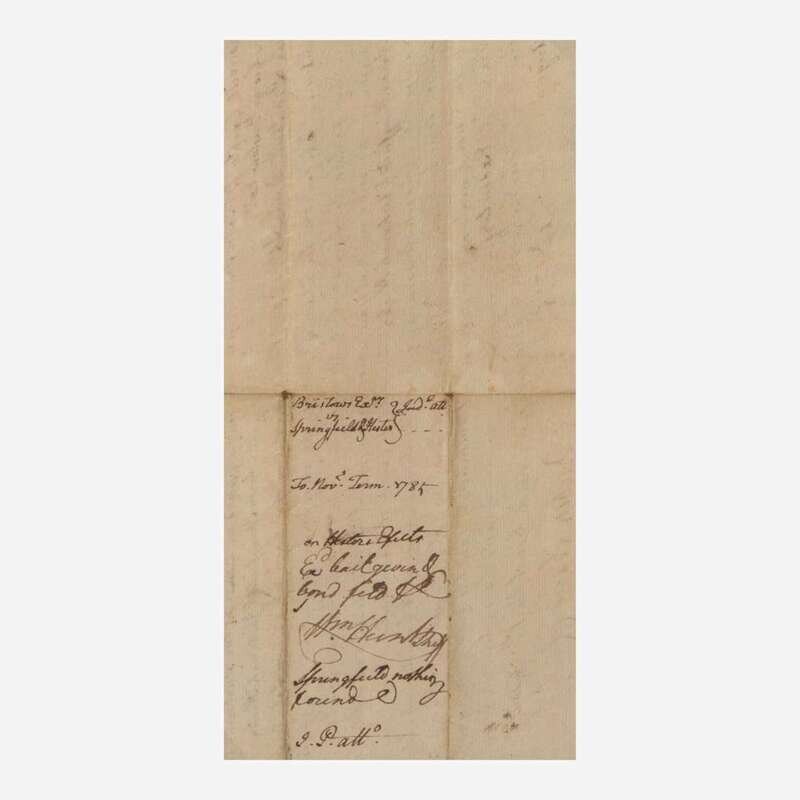 Bristows Exr. } Jud.o att
vs
Springfield & Hester } - - -
To. Novr. Term. 1785
on Hesters Efects
Exd bail gevin &
bond feld &
Wm Hunt Shff
Springfield nothing
found
J. P. atto.